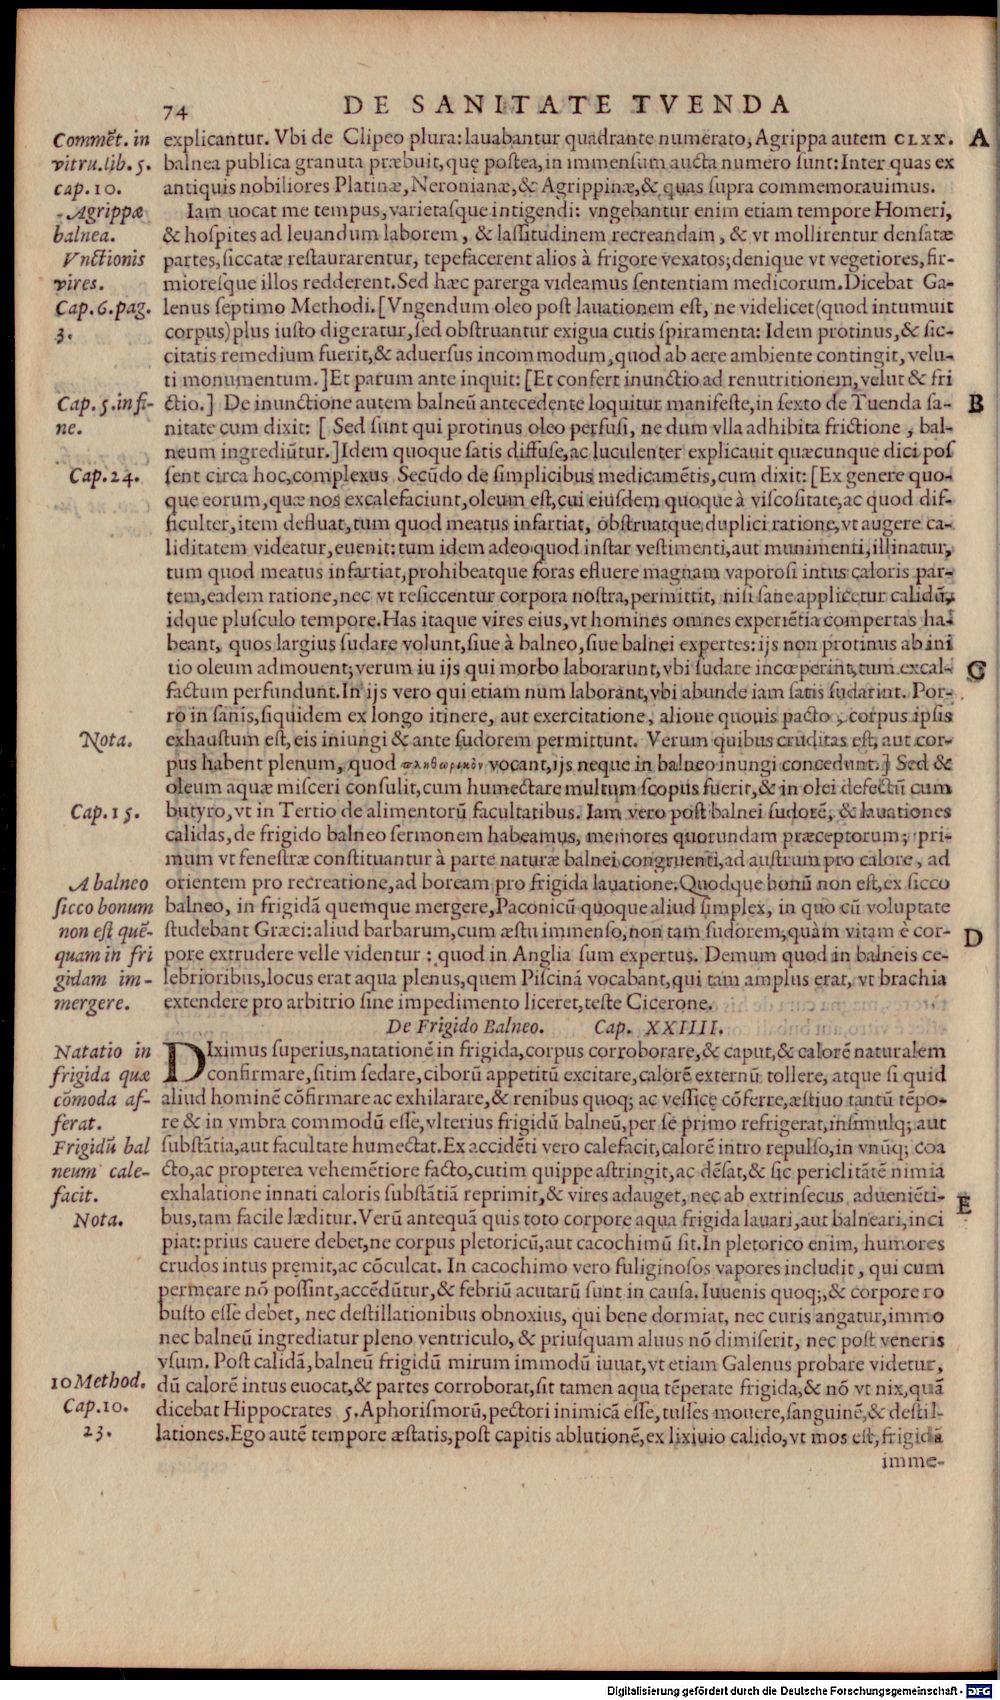 74 DE SANITATE TVENDA
Com̃ẽt. in
vitru. lib. 5.
cap. 10.
Agrippæ
balnea.
Vnctionis
vires.
Cap. 6. pag.
3.
Cap. 5. in fi-
ne.
Cap. 24.
Nota.
Cap. 15.
A balneo
sicco bonum
non est quẽ-
quam in fri
gidam im-
mergere.
explicantur. Vbi de Clipeo plura: lauabantur quadrante numerato, Agrippa autem CLXX. A
balnea publica granuta præbuit, quę postea, in immensum aucta numero sunt: Inter quas ex
antiquis nobiliores Platinæ, Neronianæ, & Agrippinæ, & quas supra commemorauimus.
Iam uocat me tempus, varietasque intigendi: vngebantur enim etiam tempore Homeri,
& hospites ad leuandum laborem, & lassitudinem recreandam, & vt mollirentur densatæ
partes, siccatæ restaurarentur, tepefacerent alios à frigore vexatos; denique vt vegetiores, fir-
mioresque illos redderent. Sed hæc parerga videamus sententiam medicorum. Dicebat Ga-
lenus septimo Methodi. [Vngendum oleo post lauationem est, ne videlicet (quod intumuit
corpus) plus iusto digeratur, sed obstruantur exigua cutis spiramenta: Idem protinus, & sic-
citatis remedium fuerit, & aduersus incommodum, quod ab aere ambiente contingit, velu-
ti monumentum.] Et parum ante inquit: [Et confert inunctio ad renutritionem, velut & fri
ctio.] De inunctione autem balneũ antecedente loquitur manifeste, in sexto de Tuenda sa- B
nitate cum dixit: [ Sed sunt qui protinus oleo perfusi, ne dum vlla adhibita frictione, bal-
neum ingrediũtur.] Idem quoque satis diffuse, ac luculenter explicauit quæcunque dici pos
sent circa hoc, complexus Secũdo de simplicibus medicamẽtis, cum dixit: [Ex genere quo-
que eorum, quæ nos excalefaciunt, oleum est, cui eiusdem quoque à viscositate, ac quod dif-
ficulter, item defluat, tum quod meatus infartiat, obstruatque duplici ratione, vt augere ca-
liditatem videatur, euenit: tum idem adeo quod instar vestimenti, aut munimenti, illinatur,
tum quod meatus infartiat, prohibeatque foras efluere magnam vaporosi intus caloris par-
tem, eadem ratione, nec vt resiccentur corpora nostra, permittit, nisi sane applicetur calidũ,
idque plusculo tempore. Has itaque vires eius, vt homines omnes experiẽtia compertas ha-
beant, quos largius sudare volunt, siue à balneo, siue balnei expertes: ijs non protinus ab ini
tio oleum admouent; verum iu ijs qui morbo laborarunt, vbi sudare incœperint, tum excal- C
factum perfundunt. In ijs vero qui etiam num laborant, vbi abunde iam satis sudarint. Por-
ro in sanis, siquidem ex longo itinere, aut exercitatione, alioue quouis pacto, corpus ipsis
exhaustum est, eis iniungi & ante sudorem permittunt. Verum quibus cruditas est, aut cor-
pus habent plenum, quod πληθωρικὸν vocant, ijs neque in balneo inungi concedunt.] Sed &
oleum aquæ misceri consulit, cum humectare multum scopus fuerit, & in olei defectũ cum
butyro, vt in Tertio de alimentorũ facultatibus. Iam vero post balnei sudorẽ, & lauationes
calidas, de frigido balneo sermonem habeamus, memores quorundam præceptorum; pri-
mum vt fenestræ constituantur à parte naturæ balnei congruenti, ad austrum pro calore, ad
orientem pro recreatione, ad boream pro frigida lauatione. Quodque bonũ non est, ex sicco
balneo, in frigidã quemque mergere, Paconicũ quoque aliud simplex, in quo cũ voluptate
studebant Græci: aliud barbarum, cum æstu immenso, non tam sudorem, quàm vitam è cor- D
pore extrudere velle videntur: quod in Anglia sum expertus. Demum quod in balneis ce-
lebrioribus, locus erat aqua plenus, quem Piscinã vocabant, qui tam amplus erat, vt brachia
extendere pro arbitrio sine impedimento liceret, teste Cicerone.
De Frigido Balneo. Cap. XXIIII.
Natatio in
frigida quæ
cõmoda af-
ferat.
Frigidũ bal
neum cale-
facit.
Nota.
10 Method.
Cap. 10.
23.
DIximus superius, natationẽ in frigida, corpus corroborare, & caput, & calorẽ naturalem
confirmare, sitim sedare, ciborũ appetitũ excitare, calorẽ externũ tollere, atque si quid
aliud hominẽ cõfirmare ac exhilarare, & renibus quoq; ac vessicę cõferre, æstiuo tantũ tẽpo-
re & in vmbra commodũ esse, vlterius frigidũ balneũ, per se primo refrigerat, insimulq; aut
substãtia, aut facultate humectat. Ex accidẽti vero calefacit, calorẽ intro repulso, in vnũq; coa
cto, ac propterea vehemẽtiore facto, cutim quippe astringit, ac dẽsat, & sic periclitãtẽ nimia
exhalatione innati caloris substãtiã reprimit, & vires adauget, nec ab extrinsecus adueniẽti- E
bus, tam facile læditur. Verũ antequã quis toto corpore aqua frigida lauari, aut balneari, inci
piat: prius cauere debet, ne corpus pletoricũ, aut cacochimũ sit. In pletorico enim, humores
crudos intus pręmit, ac cõculcat. In cacochimo vero fuliginosos vapores includit, qui cum
permeare nõ possint, accẽdũtur, & febriũ acutarũ sunt in causa. Iuuenis quoq;, & corpore ro
busto esse debet, nec destillationibus obnoxius, qui bene dormiat, nec curis angatur, immo
nec balneũ ingrediatur pleno ventriculo, & priusquam aluus nõ dimiserit, nec post veneris
vsum. Post calidã, balneũ frigidũ mirum immodũ iuuat, vt etiam Galenus probare videtur,
dũ calorẽ intus euocat, & partes corroborat, sit tamen aqua tẽperate frigida, & nõ vt nix, quã
dicebat Hippocrates 5. Aphorismorũ, pectori inimicã esse, tusses mouere, sanguinẽ, & destil-
lationes. Ego autẽ tempore æstatis, post capitis ablutionẽ, ex lixiuio calido, vt mos est, frigidã
imme-
Digitalisierung gefördert durch die Deutsche Forschungsgemeinschaft - DFG